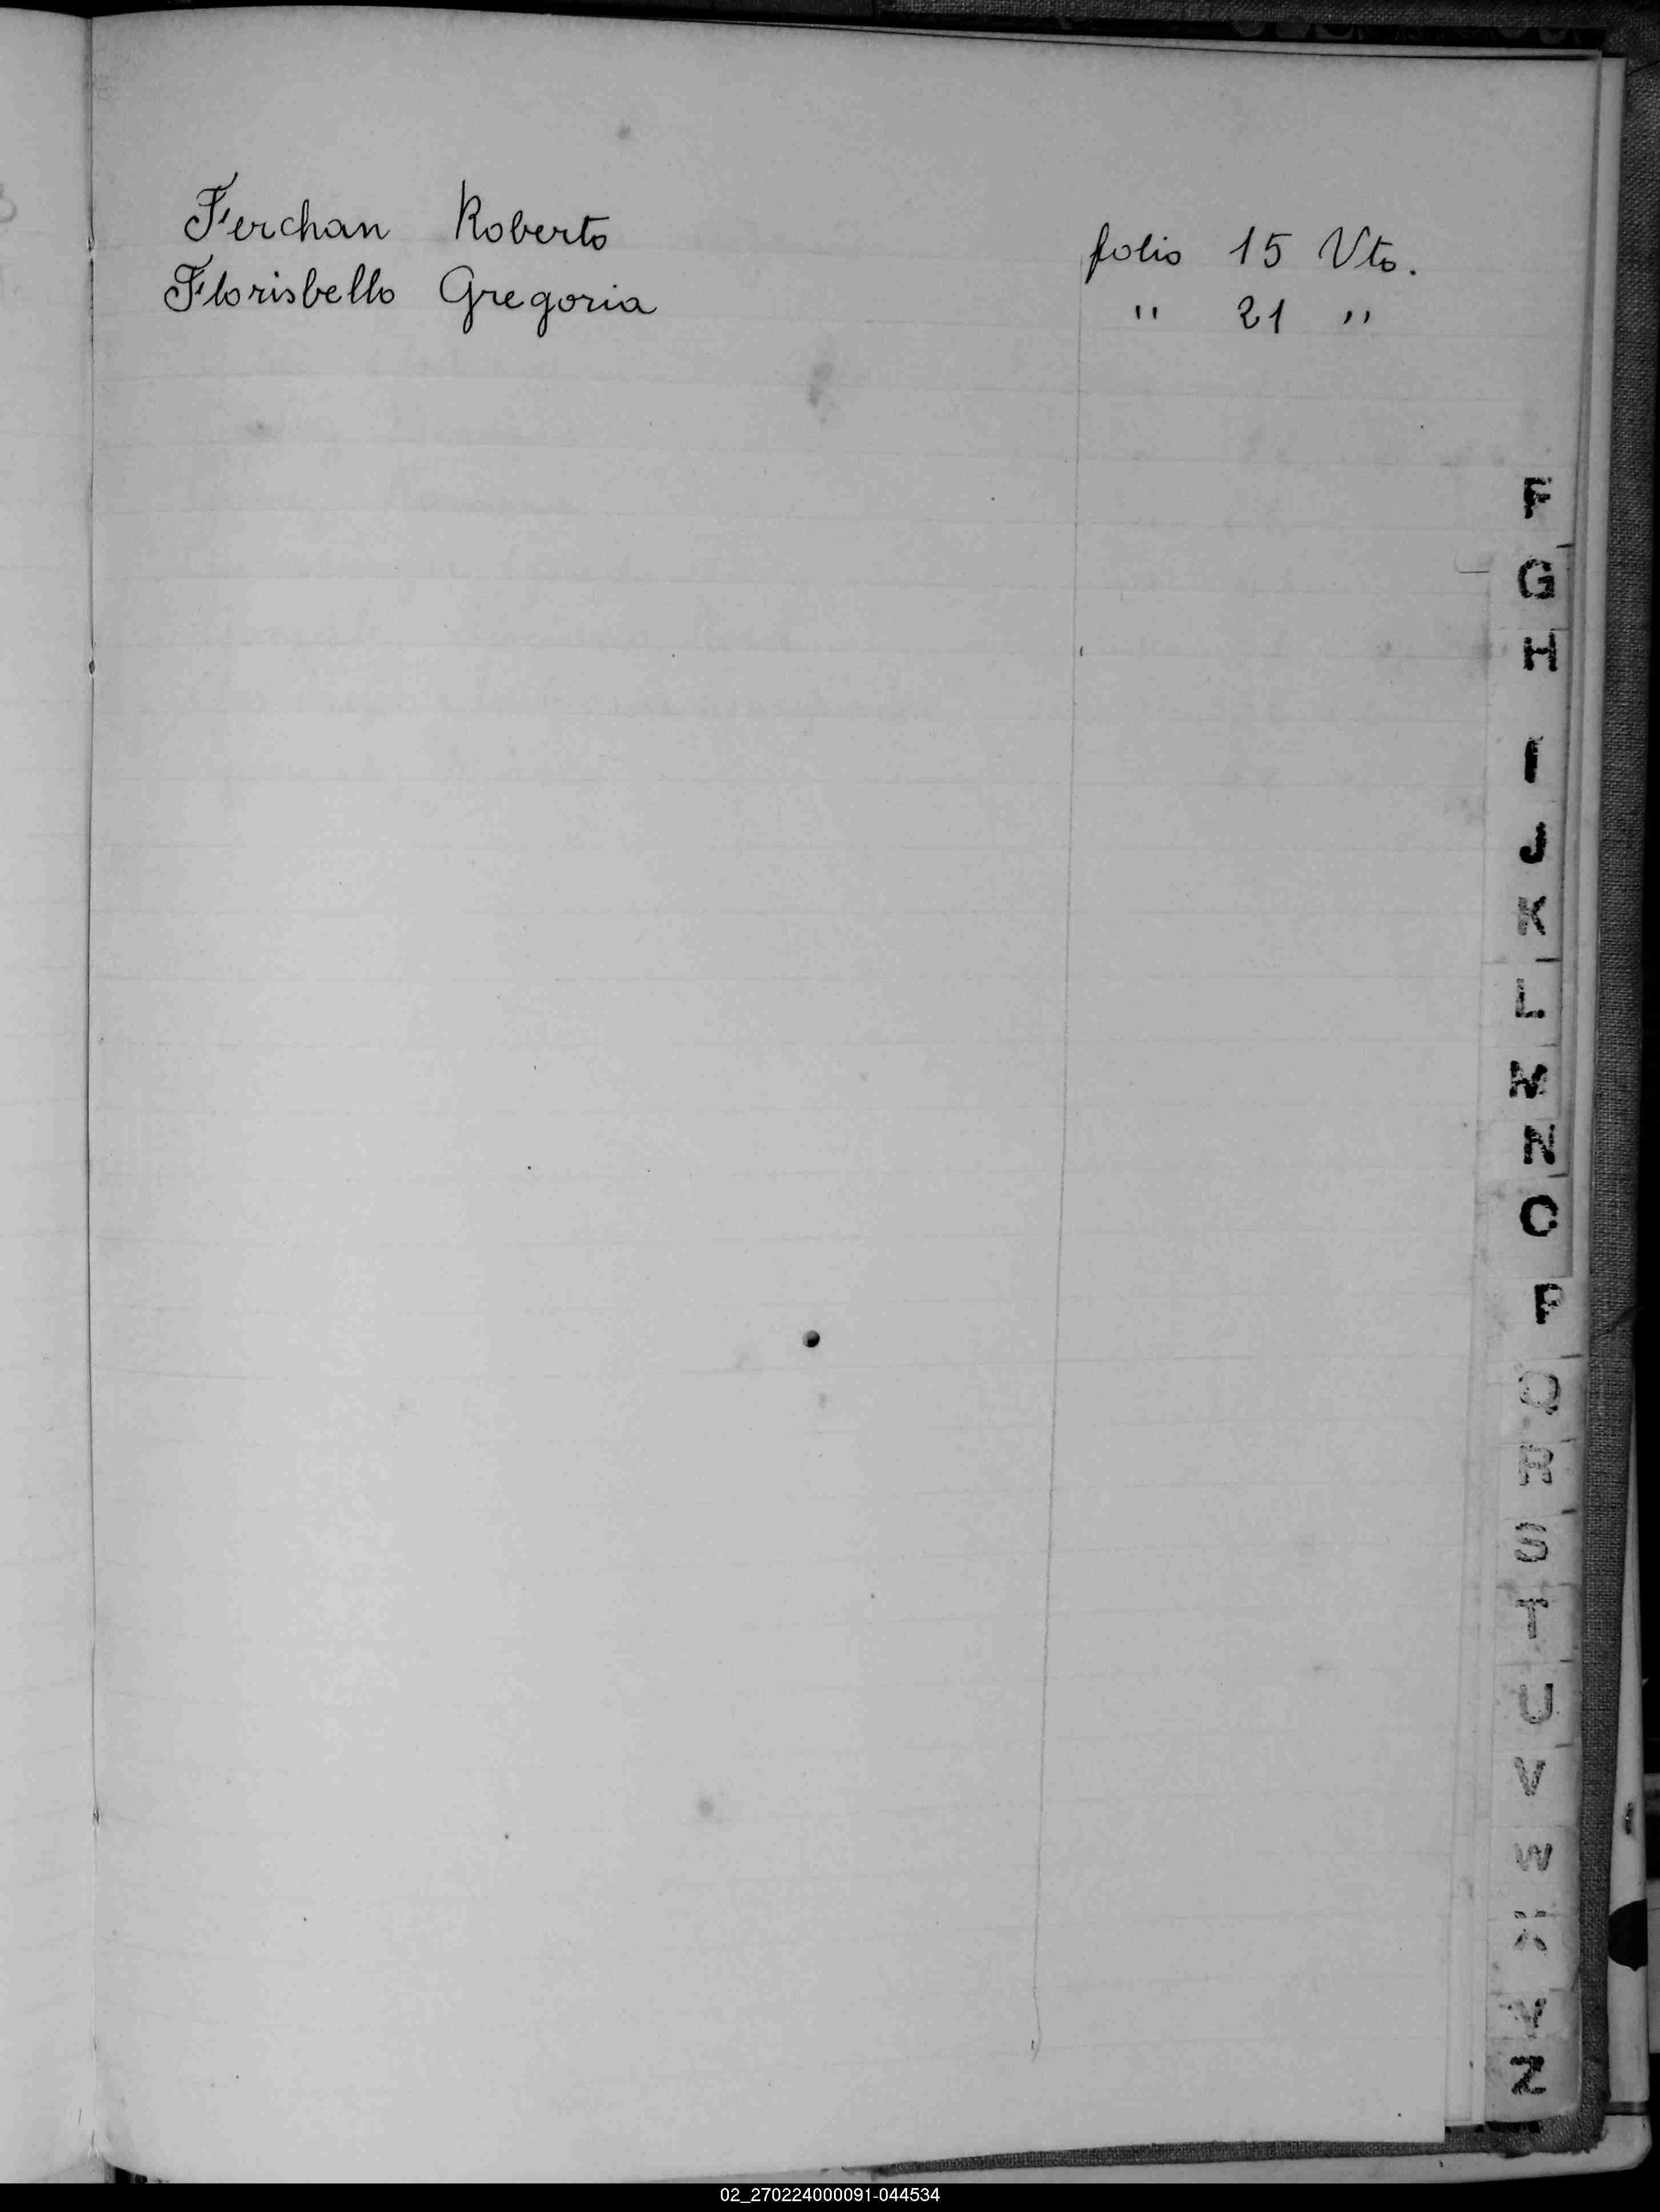 Ferchan Roberto folio 15 Vto.
Florisbello Gregoria " 21 "
F
G
H
I
J
K
L
M
N
O
P
Q
R
S
T
U
V
W
X
Y
Z
02_270224000091-044534